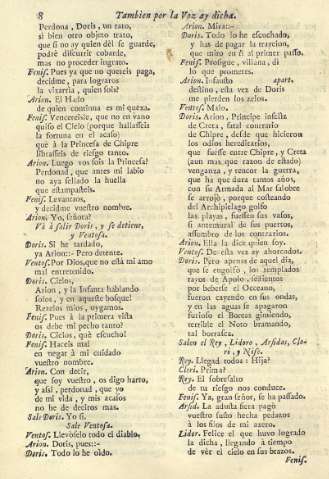 8 Tambien por la Voz ay dicha.
Perdona, Doris, un rato,
si bien otro objeto trato,
que si no ay quien dèl le guarde,
podrè discurrir cobarde,
mas no proceder ingrato.
Fenis. Pues ya que no quereis paga,
decidme, para lograros
la vizarria, quien sois?
Arion. El Hado
de quien continua es mi quexa.
Fenis. Vencereisle, que no en vano
quiso el Cielo (porque hallasseis
la fortuna en el acaso)
que à la Princesa de Chipre
librasseis de riesgo tanto.
Arion. Luego vos sois la Princesa?
Perdonad, que antes mi labio
no aya sellado la huella
que estampasteis.
Fenis. Levantaos,
y decidme vuestro nombre.
Arion. Yo, señora?
Và à salir Doris, y se detiene,
y Ventosa.
Doris. Si he tardado,
ya Arion:- Pero detente.
Ventos. Por Dios, que no està mi amo
mal entretenido.
Doris. Cielos,
Arion, y la Infanta hablando
solos, y en aqueste bosque!
Rezelos mios, oygamos.
Fenis. Pues à la primera vista
os debe mi pecho tanto?
Doris. Cielos, què escucho!
Fenis. Hareis mal
en negar à mi cuidado
vuestro nombre.
Arion. Con decir,
que soy vuestro, os digo harto,
y assi, perdonad, que yo
de mi vida, y mis acasos
no he de deciros mas.
Sale Doris. Yo si.
Sale Ventosa.
Ventos. Llevòselo todo el diablo.
Arion. Doris, pues:-
Doris. Todo lo he oìdo.
Arion. Mira:-
Doris. Todo lo he escuchado,
y has de pagar la traicion,
que miro en ti al primer passo.
Fenis. Prosigue, villana, di
lo que prometes.
Arion. Infausto aparte.
destino, esta vez de Doris
me pierden los zelos.
Ventos. Malo.
Doris. Arion, Principe infeliz
de Creta, fatal contrario
de Chipre, desde que hicieron
los odios heredarios,
que fuesse entre Chipre, y Creta
(aun mas que razon de estado)
venganza, y teñcor la guerra,
que ha que dura tantos años,
con su Armada al Mar salobre
se arrojò, porque costeando
del Archipielago golfo
las playas, fuessen sus vasos,
si antemural de sus puertos,
assombro de los contrarios.
Arion. Ella la dice quien soy.
Ventos. De esta vez ay ahorcados.
Doris. Pero apenas de aquel dia,
que se engolfò, los templados
rayos de Apolo, sedientos
por beberse el Occeano,
fueron cayendo en sus ondas,
y en las aguas se apagaron
furioso el Boreas gimiendo,
terrible el Noto bramando,
tal borrasca.
Salen el Rey, Lidoro, Arsidas, Cloris, y Niso.
Rey. Llegad todos: Hija?
Clori. Prima?
Rey. El sobresalto
de tu riesgo nos conduce.
Fenis. Ya, gran señor, se ha passado.
Arsid. La adusta fiera pagò
vuestro susto hecha pedazos
à los filos de mi azero.
Lidor. Felice el que huvo logrado
la dicha, llegando à tiempo
de vèr el cielo en sus brazos.
Fenis.